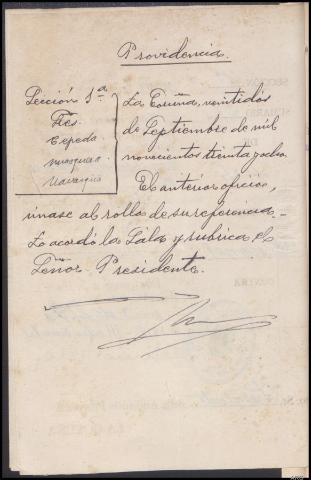 Providencia.
Sección 1ª
Fres.
Cepeda
Mosquera
Navarro
La Coruña, veintidos
de Septiembre de mil
novecientos treinta y ocho.
El anterior oficio,
unase al rollo de su referencia
Lo acordó la Sala y rubrica el
Señor Presidente.